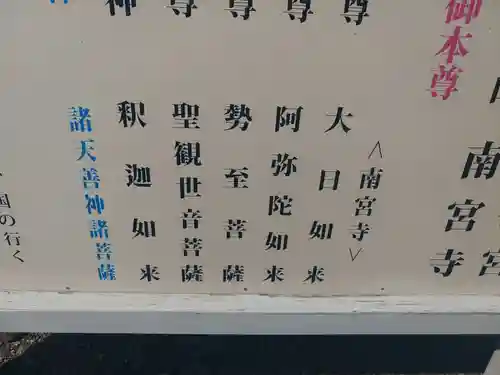 御本尊
南宮寺
宮
<南宮寺>
尊
大日如来
尊
阿弥陀如来
尊
勢至菩薩
尊
聖観世音菩薩
神
釈迦如来
諸天善神諸菩薩
国の行く